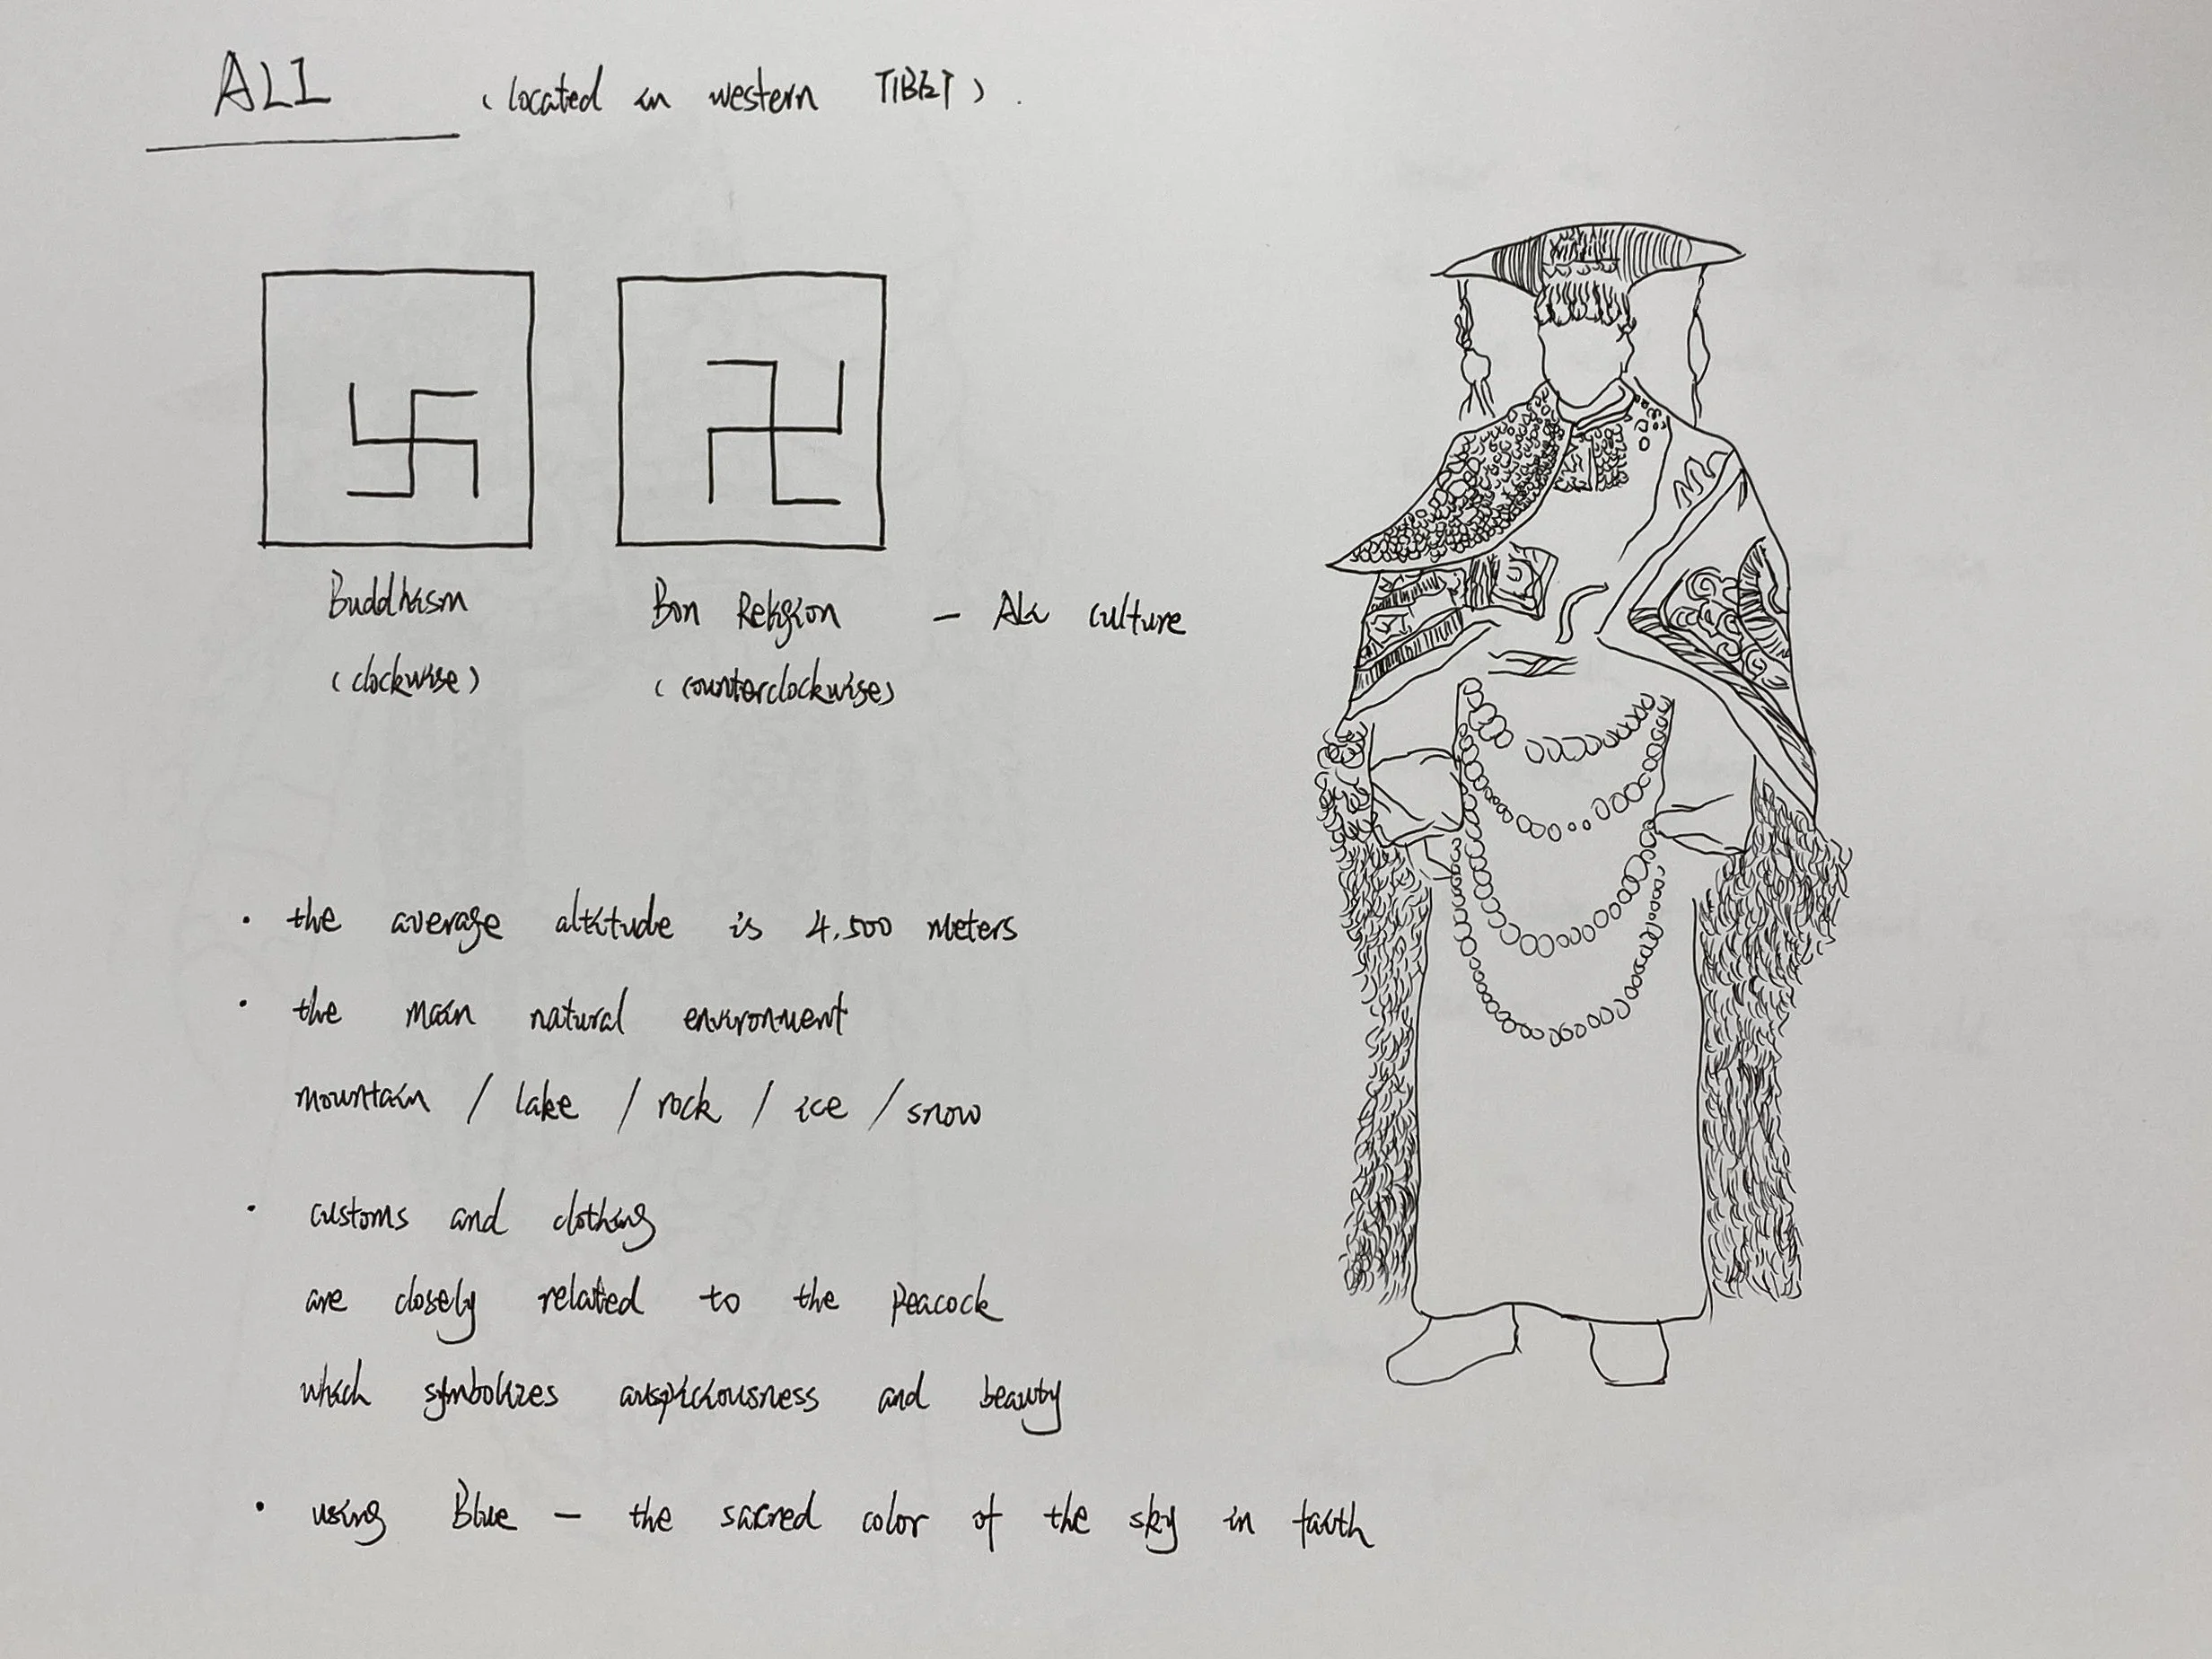 ALI (located in western TIBET).
Buddhism
(clockwise)
Bon Religion — Ali culture
(counterclockwise)
· the average altitude is 4,500 meters
· the main natural environment
mountain / lake / rock / ice / snow
· customs and clothing
are closely related to the peacock
which symbolizes auspiciousness and beauty
· using Blue — the sacred color of the sky in faith